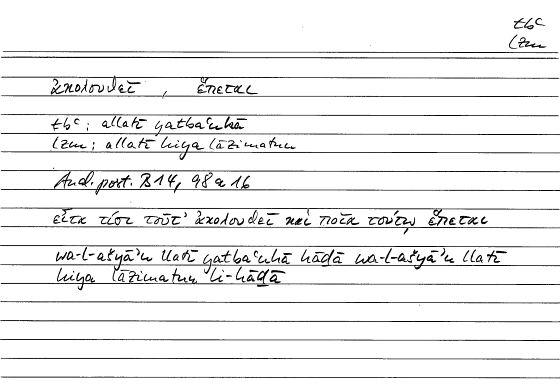 tbʿ
lzm
ἀκολουθεῖ , ἕπεται
tbʿ; allatī yatbaʿuhā
lzm; allatī hiya lāzimatun
An. post. B 14, 98 a 16
εἶτα τίσι τοῦτ' ἀκολουθεῖ καὶ ποῖα τούτῳ ἕπεται
wa-l-ašyāʾu llatī yatbaʿuhā hāḏā wa-l-ašyāʾu llatī
hiya lāzimatun li-hāḏā